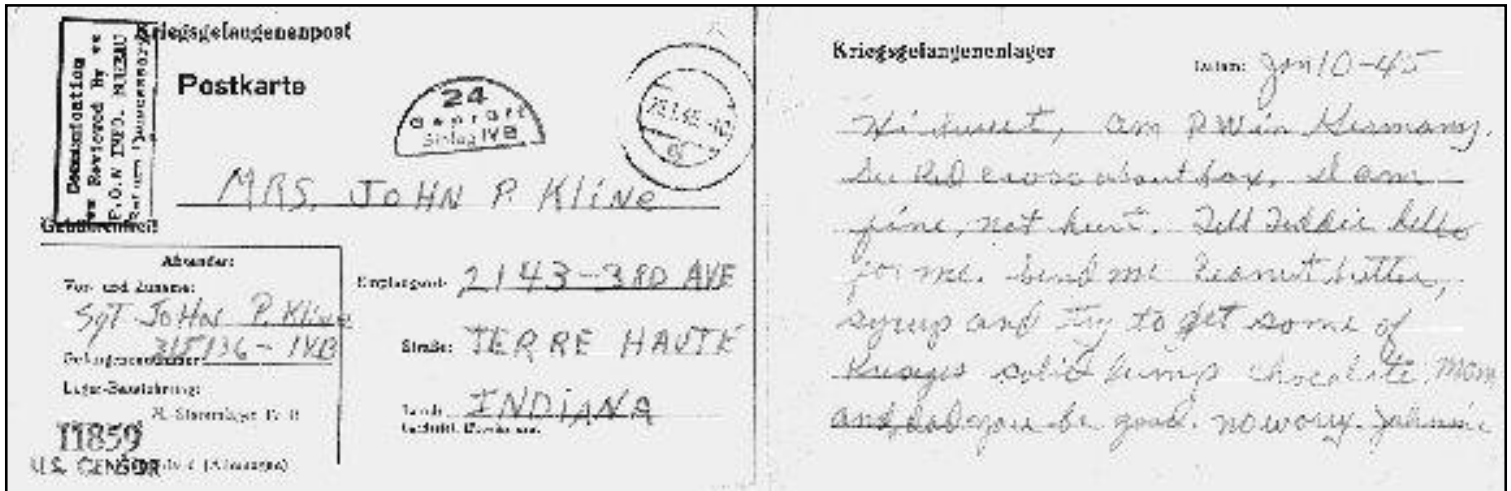 Kriegsgefangenenpost
Postkarte
Communication
** Reviewed By **
P.O.W INFO. BUREAU
Return Unnecessary
24
Geprüft
Stalag IVB
MRS. JOHN P. KLINE
Gebührenfrei!
Absender:
Vor- und Zuname:
SgT JoHN P. KLINE
315136 - IVB
Gefangenennummer:
Lager-Bezeichnung:
M. Stammlager IV B
11859
U.S. CENSOR
Empfangsort: 2143-3RD AVE
Straße: TERRE HAUTE
Land: INDIANA
Kriegsgefangenenlager
Datum: Jan 10-45
Hi sweet, am P W in Germany.
See Red cross about box, I am
fine, not hurt. Tell Teddie hello
for me. Send me Peanut butter,
syrup and try to get some of
Kresges solid lump chocolate. Mom
and dad you be good. no worry. Johnnie